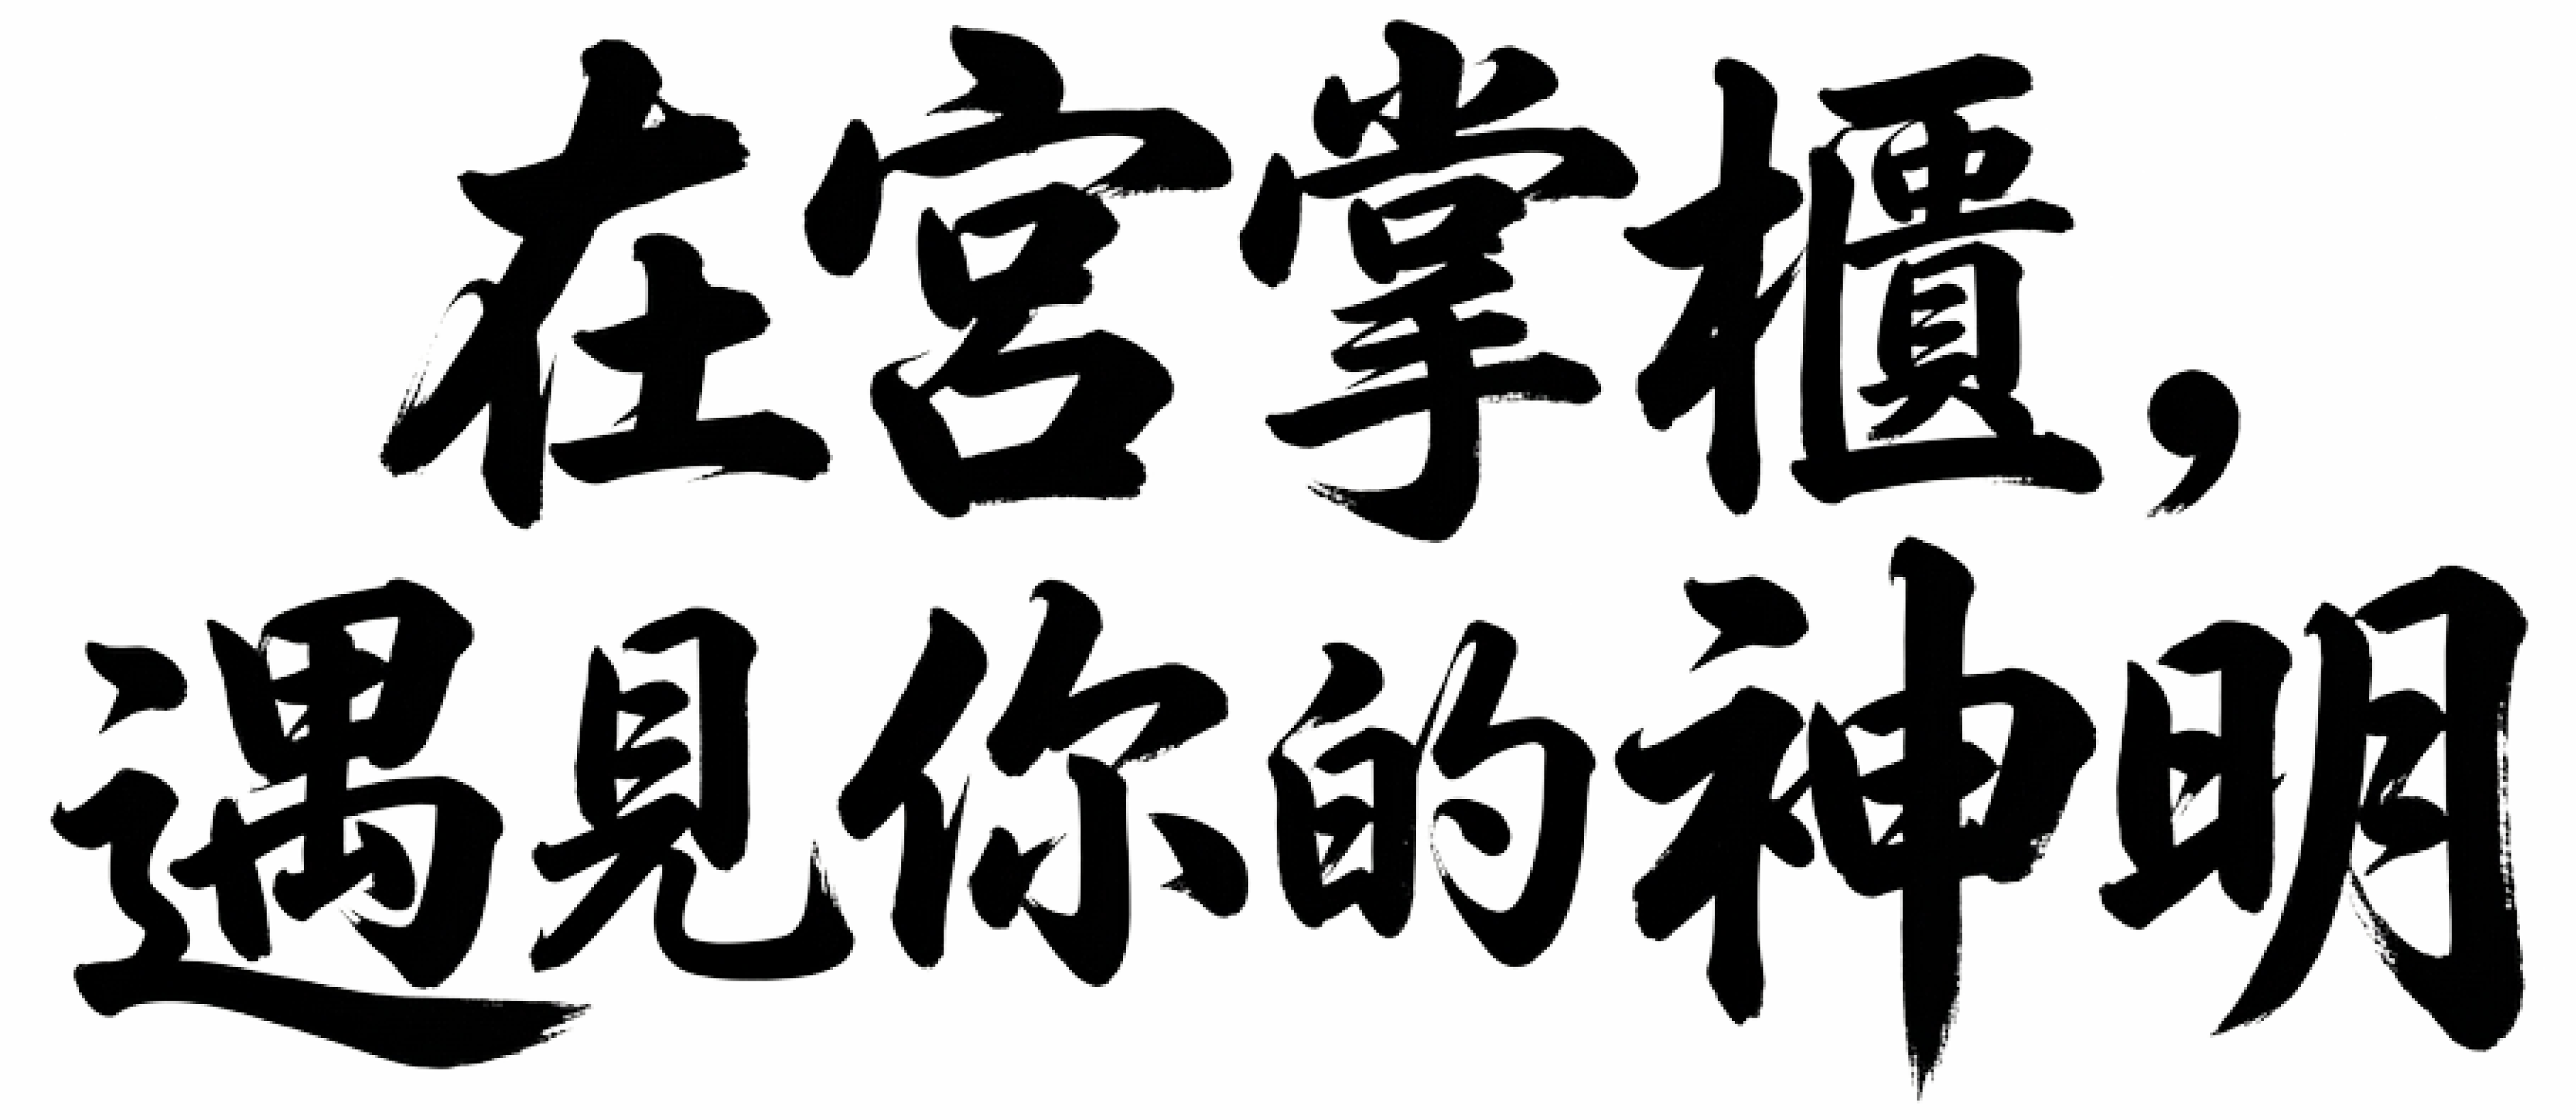 在宮掌櫃,
遇見你的神明